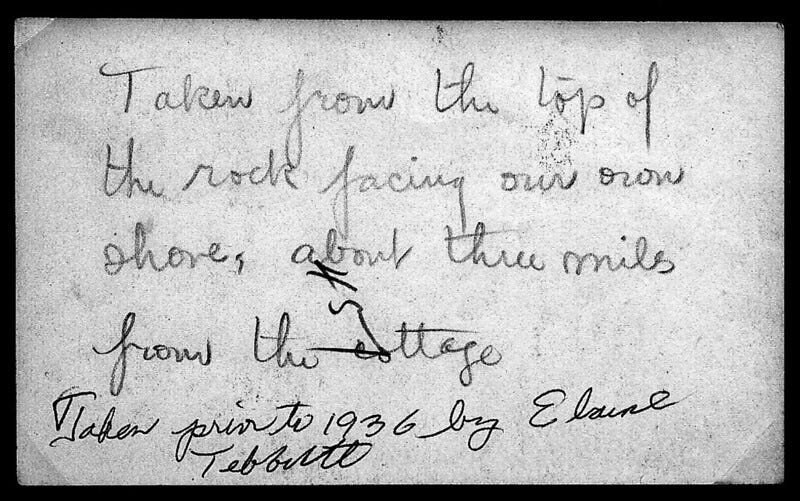 Taken from the top of
the rock facing our own
shore, about three miles
from the cottage
Taken prior to 1936 by Elaine
Tebbutt